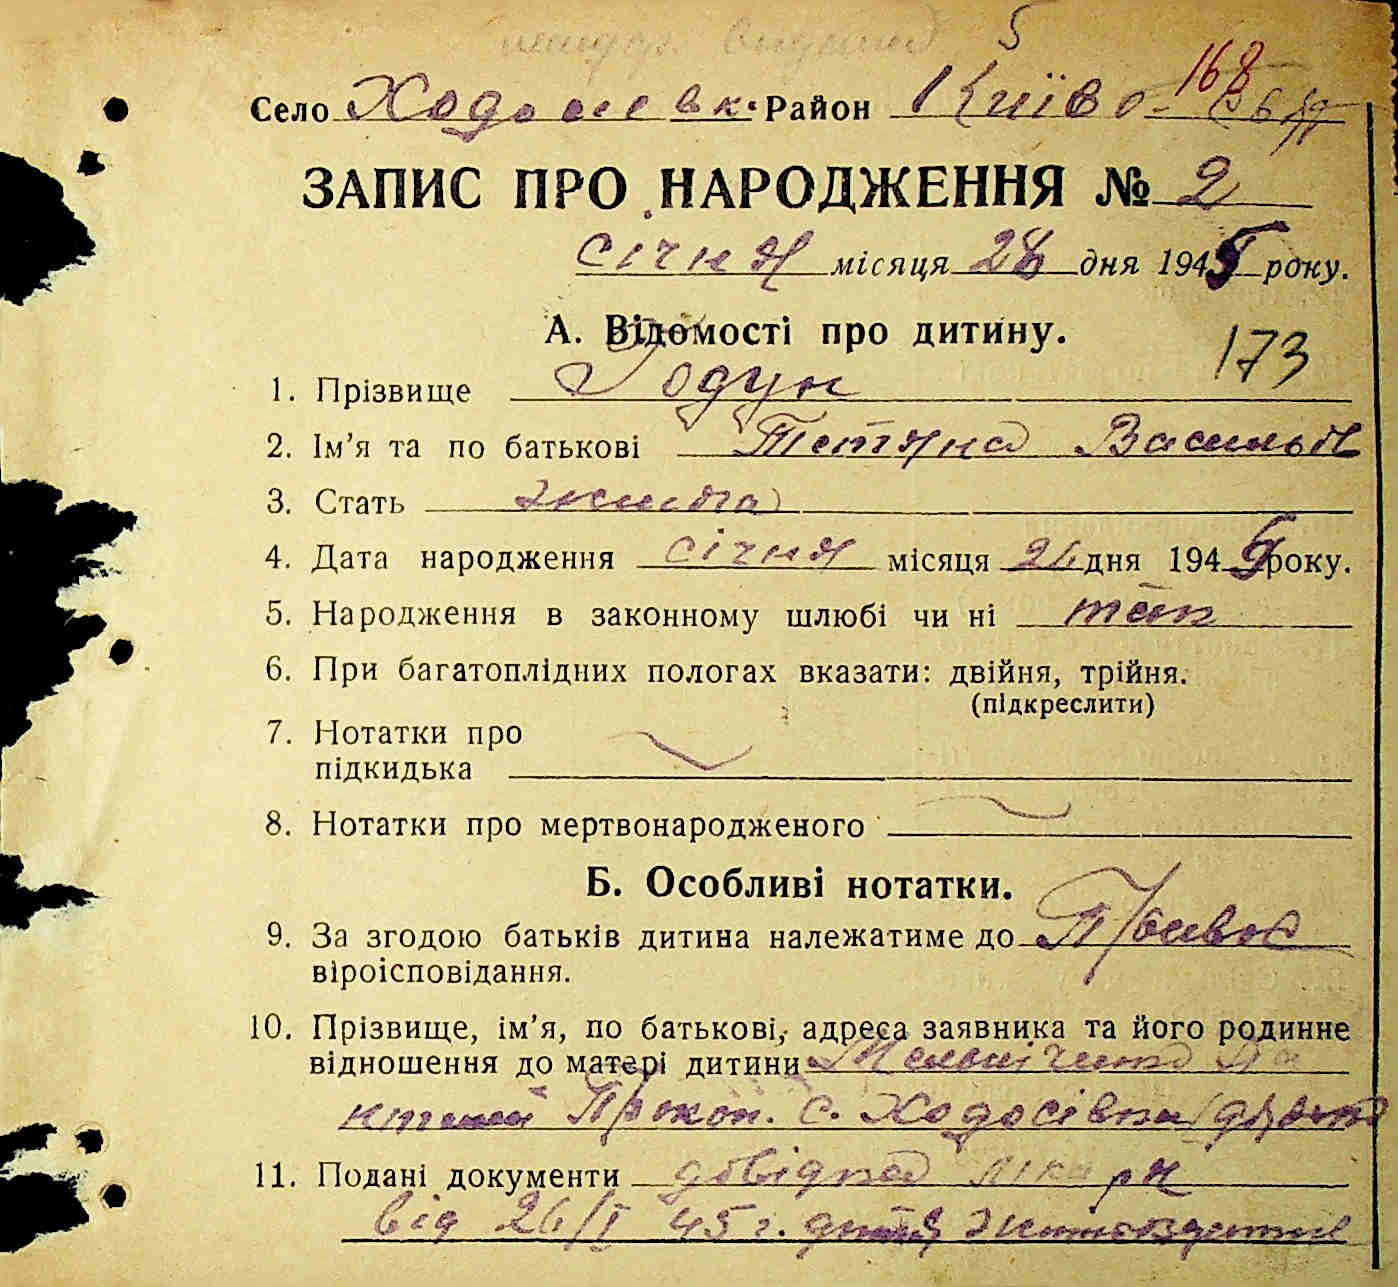 5
168
Село Ходосівк. Район Київо-Свят
ЗАПИС ПРО НАРОДЖЕННЯ № 2
січня місяця 28 дня 1945 року.
А. Відомості про дитину.
173
1. Прізвище Годун
2. Ім'я та по батькові Тетяна Василів
3. Стать
4. Дата народження січня місяця 26 дня 1945 року.
5. Народження в законному шлюбі чи ні так
6. При багатоплідних пологах вказати: двійня, трійня.
(підкреслити)
7. Нотатки про
підкидька
8. Нотатки про мертвонародженого
Б. Особливі нотатки.
9. За згодою батьків дитина належатиме до
віроісповідання.
10. Прізвище, ім'я, по батькові, адреса заявника та його родинне
відношення до матері дитини
Прокоп. с. Ходосівка
11. Подані документи довідка лікарн
від 26/I 45 г.